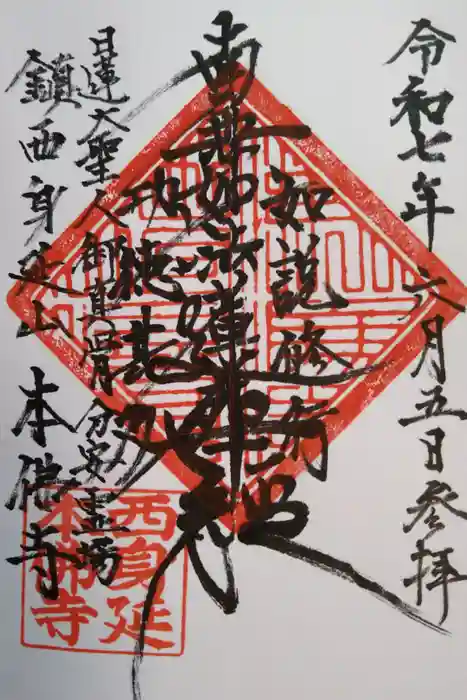 令和七年六月五日参拝
如説修行
南無妙法蓮華経
功徳甚多
日蓮大聖人御真骨分安霊場
鎮西身延山 本佛寺
西身延
本佛寺